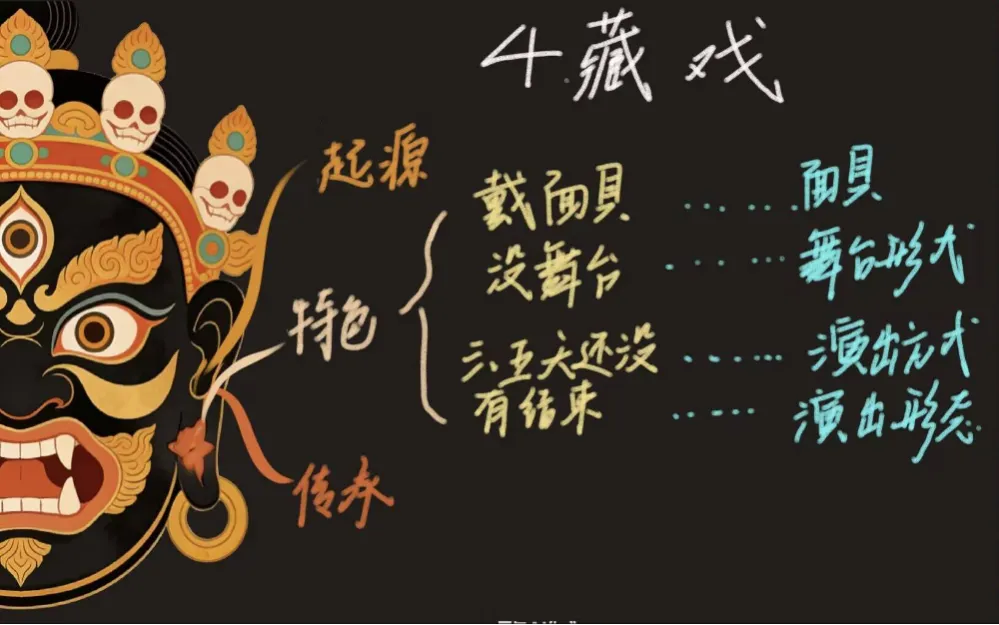 4.藏戏
起源
特色
传承
戴面具......面具
没舞台......舞台形式
三、五天还没......演出方式
有结束......演出形态.